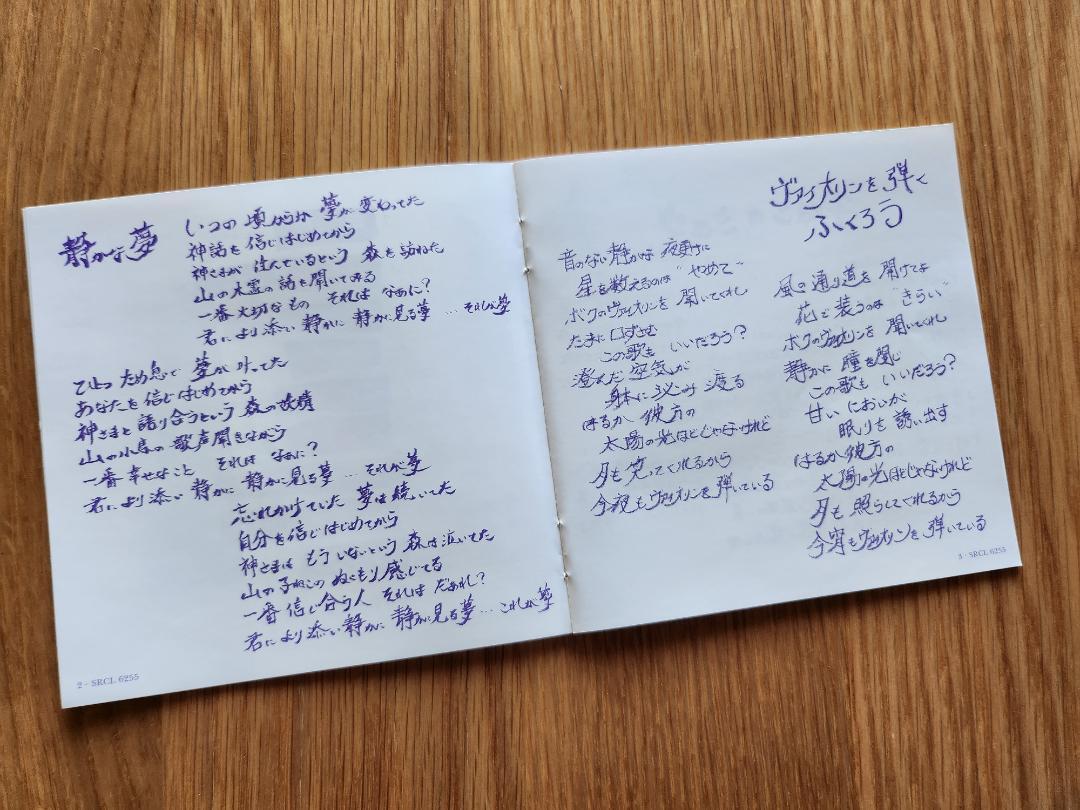 静かな夢
いつの頃からか 夢が変わってた
神話を信じはじめてから
神さまが住んでいるという 森を訪ねた
山の木霊の話を聞いてみる
一番大切なもの それは なぁに?
君により添い 静かに 静かに見る夢 … それが夢
ため息で 夢が叶ってた
あなたを信じはじめてから
神さまと語り合うという 森の妖精
山の小鳥の 歌声聞きながら
一番幸せなこと それは なぁに?
君により添い 静かに 静かに見る夢 … それが夢
忘れかけていた 夢は続いてた
自分を信じはじめてから
神さまは もういないという 森は泣いてた
山の子ねこの ぬくもり感じてる
一番信じ合う人 それは だぁれ?
君により添い 静かに 静かに見る夢 … これが夢
2 - SRCL 6255
ヴァイオリンを弾く
ふくろう
音のない静かな 夜更けに
星を数えるのは"やめて"
ボクのヴァイオリンを 聞いてくれ
たまに口ずさむ
この歌も いいだろう?
澄んだ空気が
身体に 染み渡る
はるか彼方の
太陽の光ほどじゃないけれど
月も笑ってくれるから
今夜もヴァイオリンを弾いている
風の通り道を 開けてよ
花で装うのは"きらい"
ボクのヴァイオリンを 聞いてくれ
静かに 瞳を閉じ
この歌も いいだろう?
甘い においが
眠りを誘い出す
はるか彼方の
太陽の光ほどじゃないけれど
月も照らしてくれるから
今宵もヴァイオリンを弾いている
3 - SRCL 6255